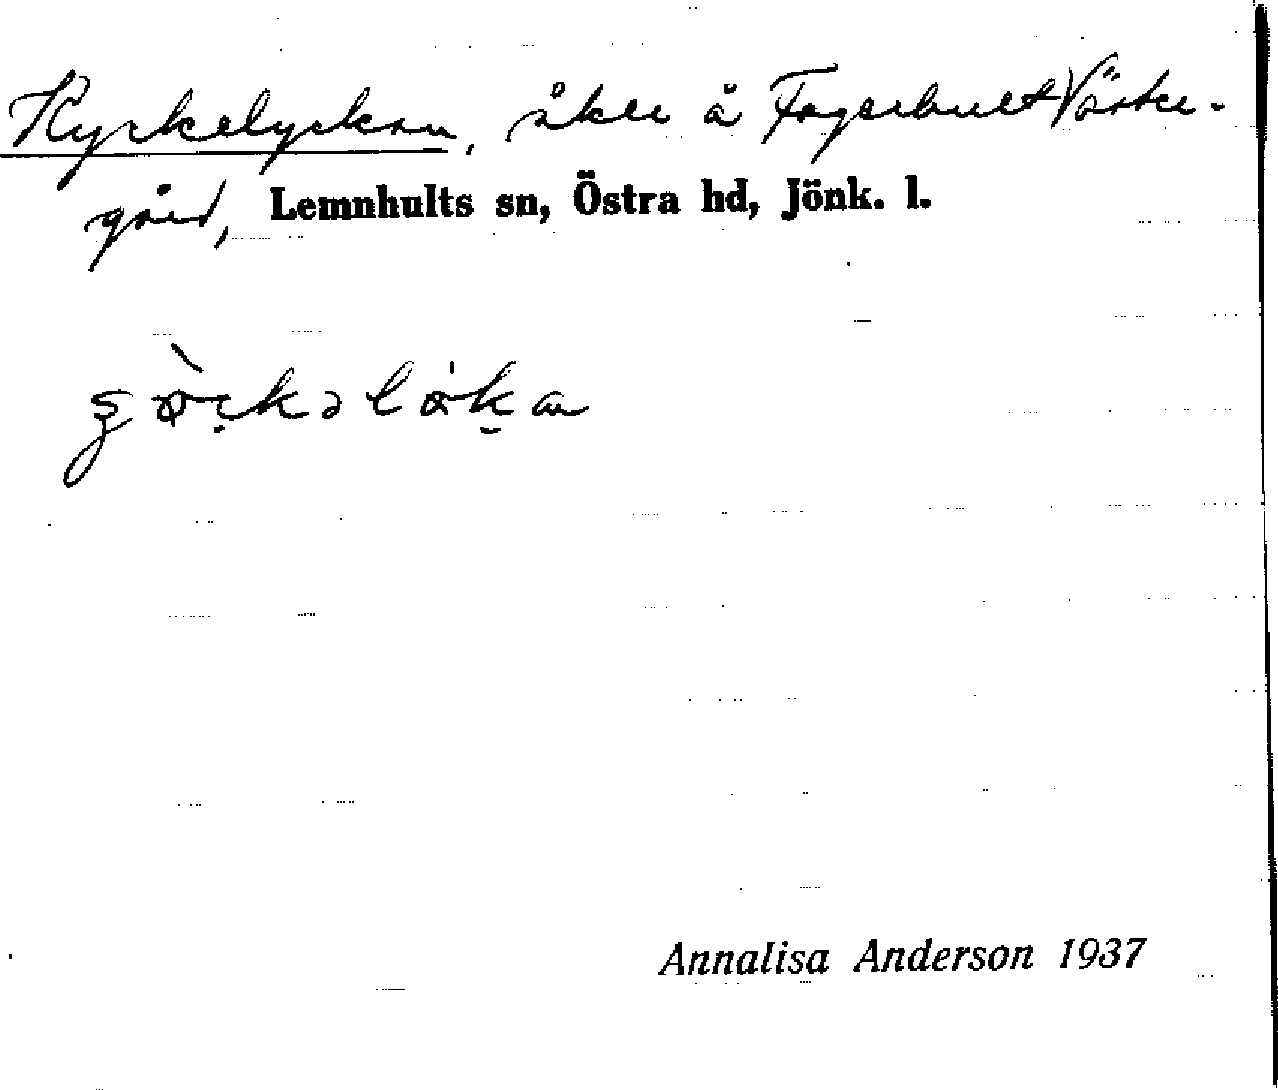 Kyrkelyckan, åker å Fagerhult Västre-
gård, Lemnhults sn, Östra hd, Jönk. l.
Annalisa Anderson 1937